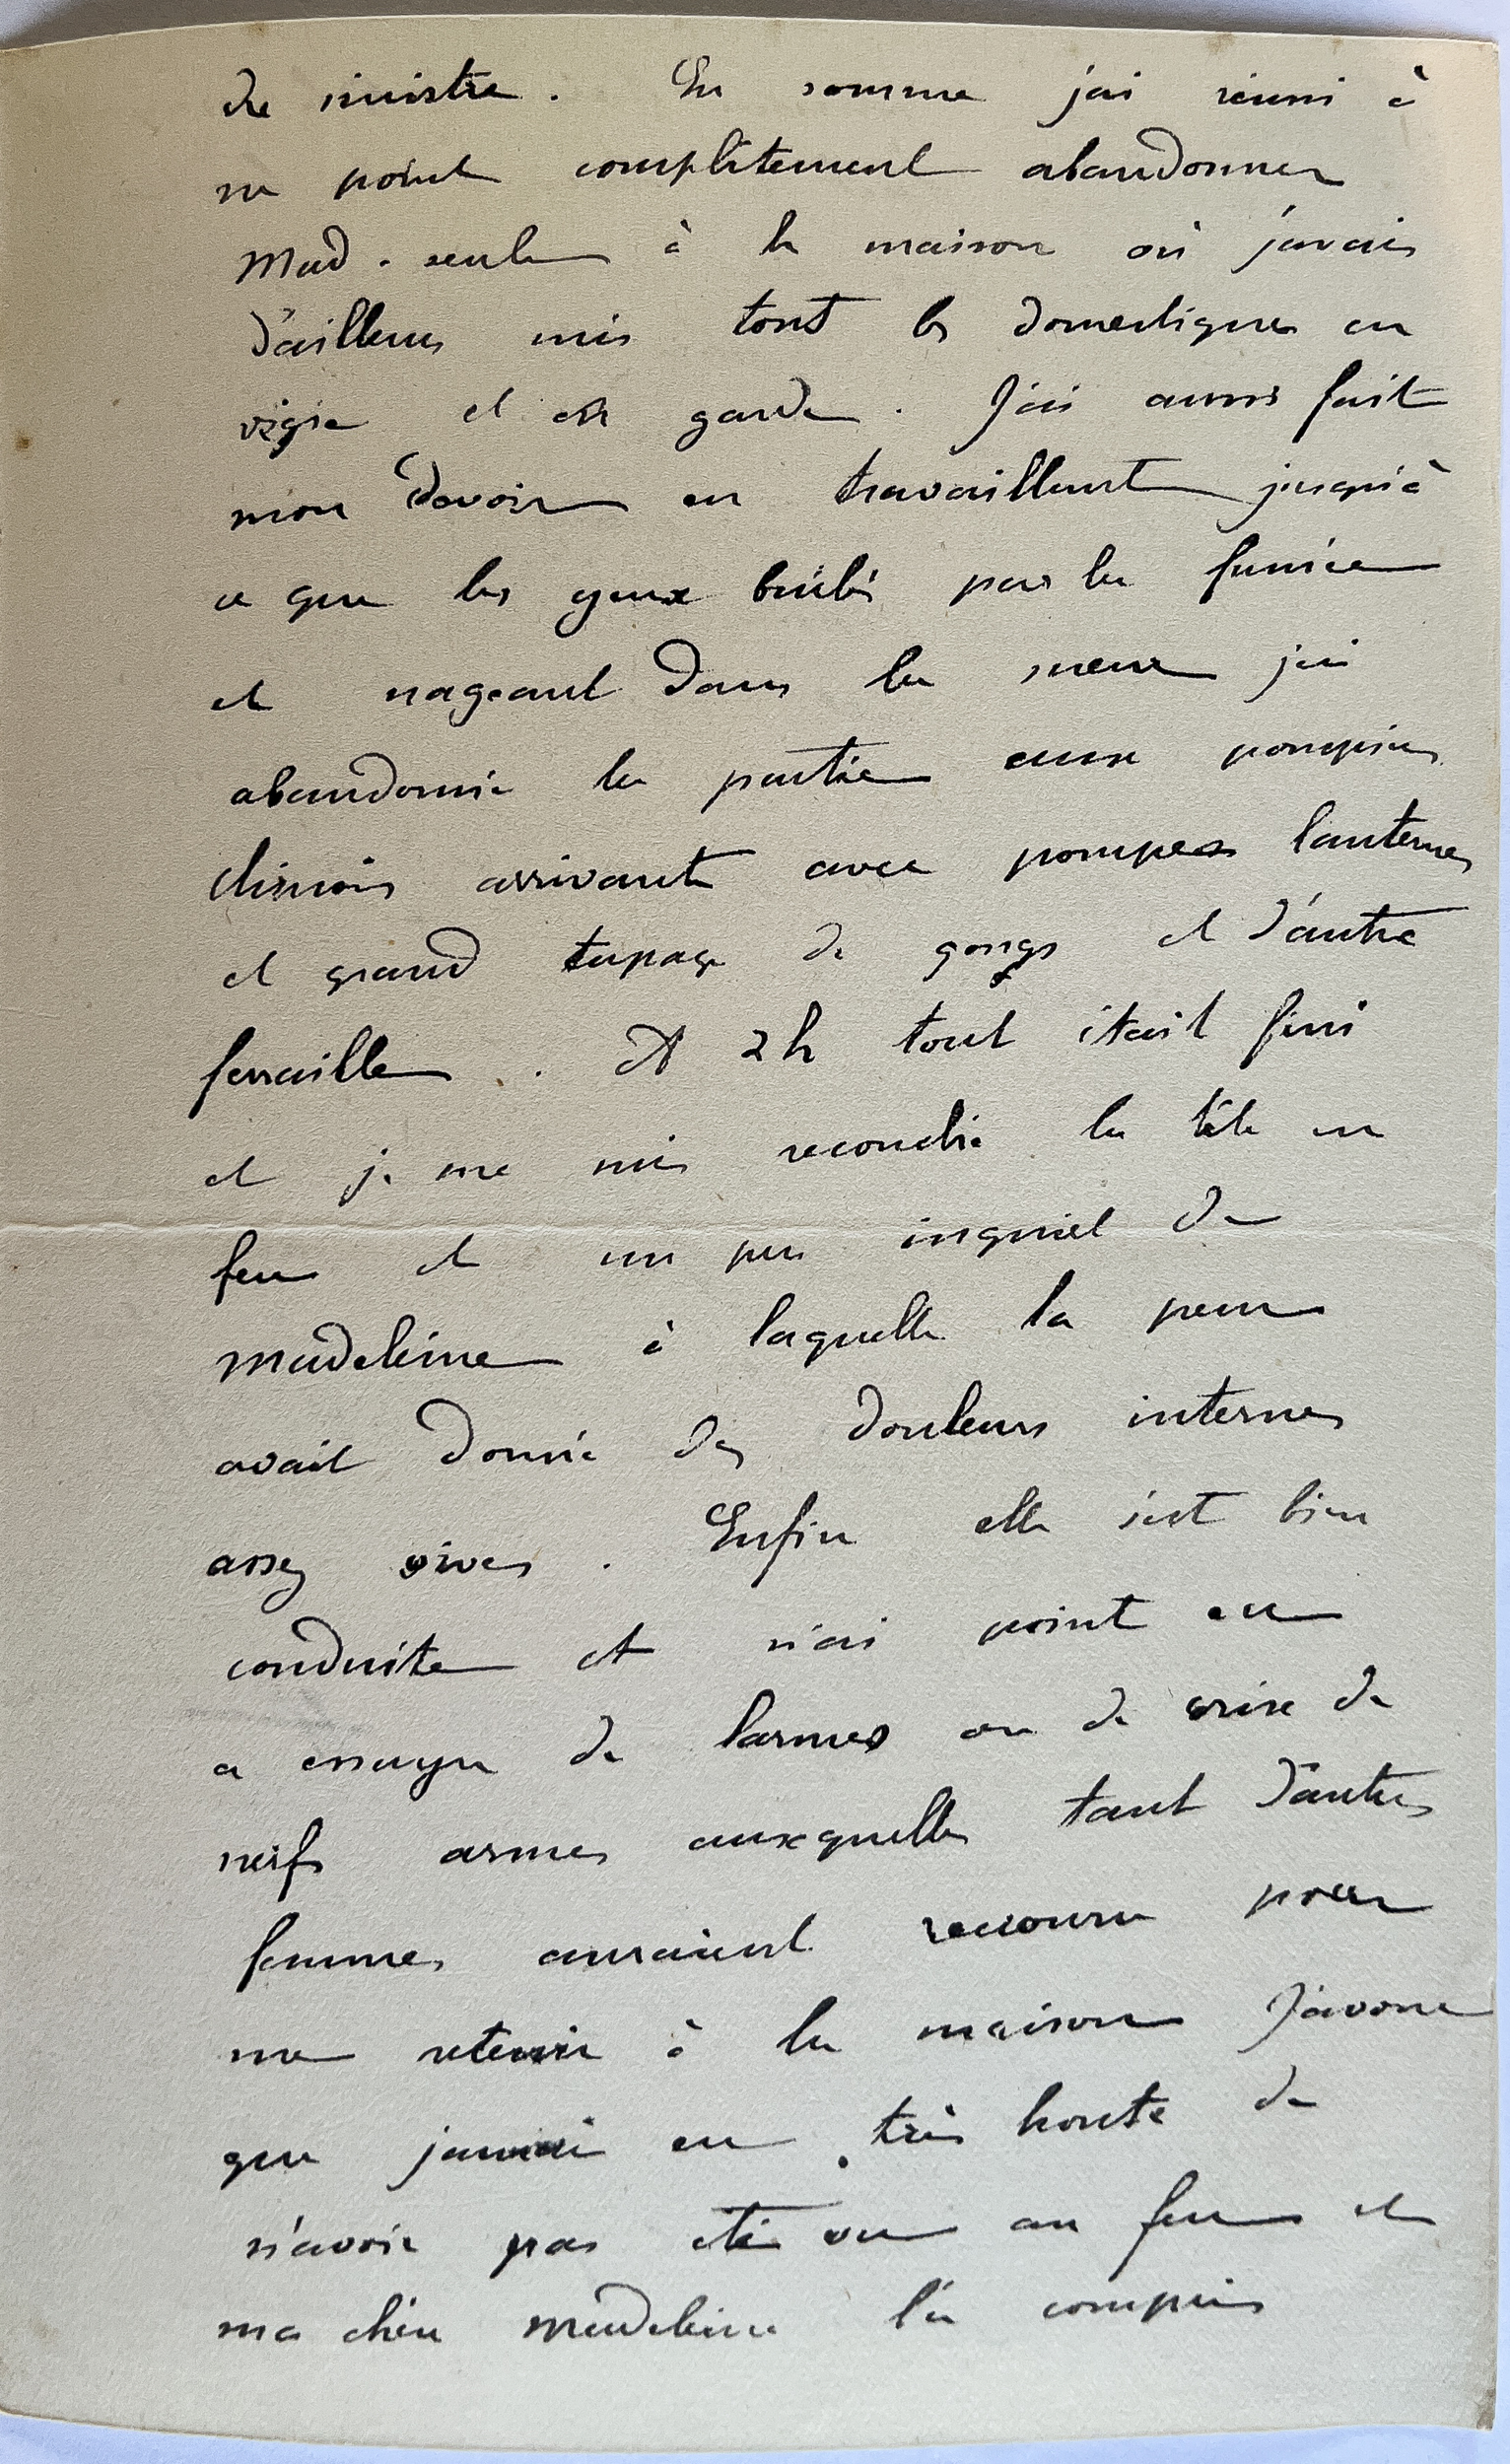 de sinistre. En somme j'ai réussi à
ne point complètement abandonner
Mad. seule à la maison où j'avais
d'ailleurs mis tout les domestiques en
vigie et en garde. J'ai aussi fait
mon devoir en travaillant jusqu'à
ce que les yeux brûlés par la fumée
et nageant dans la sueur j'ai
abandonné la partie aux pompiers
chinois arrivant avec pompes lanternes
et grand tapage de gongs et d'autre
ferraille. A 2h tout était fini
et je me suis recouché la tête en
feu et un peu inquiet de
Madeleine à laquelle la peur
avait donné des douleurs internes
assez vives. Enfin elle s'est bien
conduite et n'ai point eu
a essuyer de larmes ou de crise de
nerfs armes auxquelles tant d'autres
femmes auraient recouru pour
me retenir à la maison J'avoue
que j'aurai eu très honte de
n'avoir pas été vu au feu et
ma chère Madeleine l'a compris